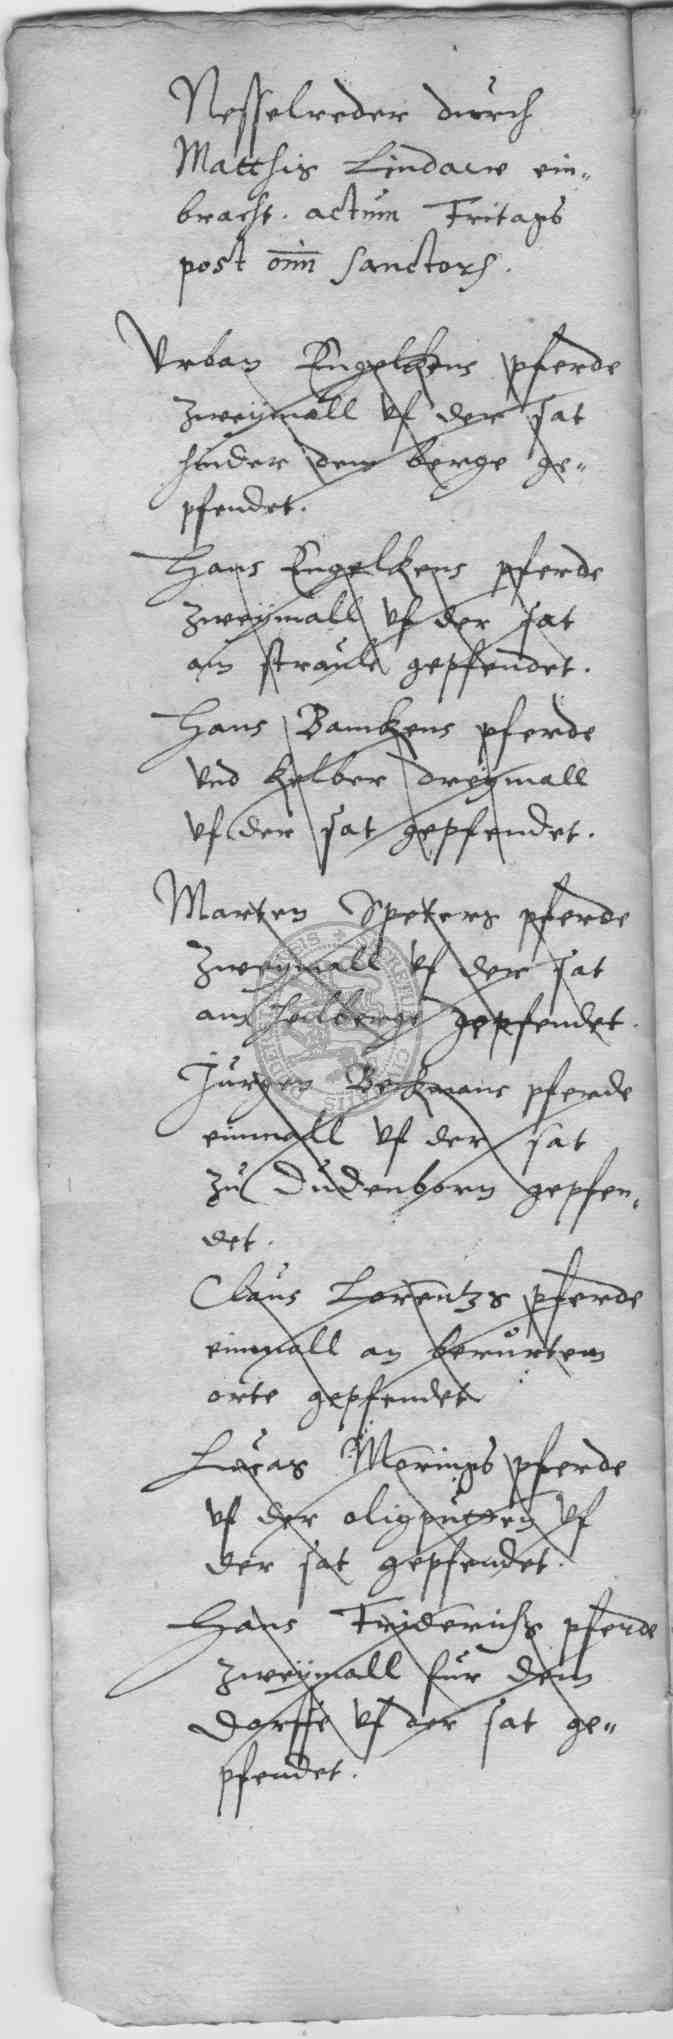 Nesselreder durch
Matthis Lindauw ein„
bracht. actum Fritags
post om̄ sanctorum.
Urban Engelckens pferde
zweymall uf der sat
hinder dem berge ge„
pfendet.
Hans Engelckens pferde
zweymall uf der sat
am gepfendet.
Hans Bamckens pferde
und kelber dreymall
uf der sat gepfendet.
Marten Speters pferde
zweymall uf der sat
am gepfendet.
Jurgen Beckmans pferde
einmall uf der sat
zu Dudenborn gepfen„
det.
Claus Lorentzs pferde
einmall an berurtem
orte gepfendet
Lucas Morings pferde
uf der uf
der sat gepfendet.
Hans Friderichs pferde
zweymall fur dem
dorffe uf der sat ge„
pfendet.